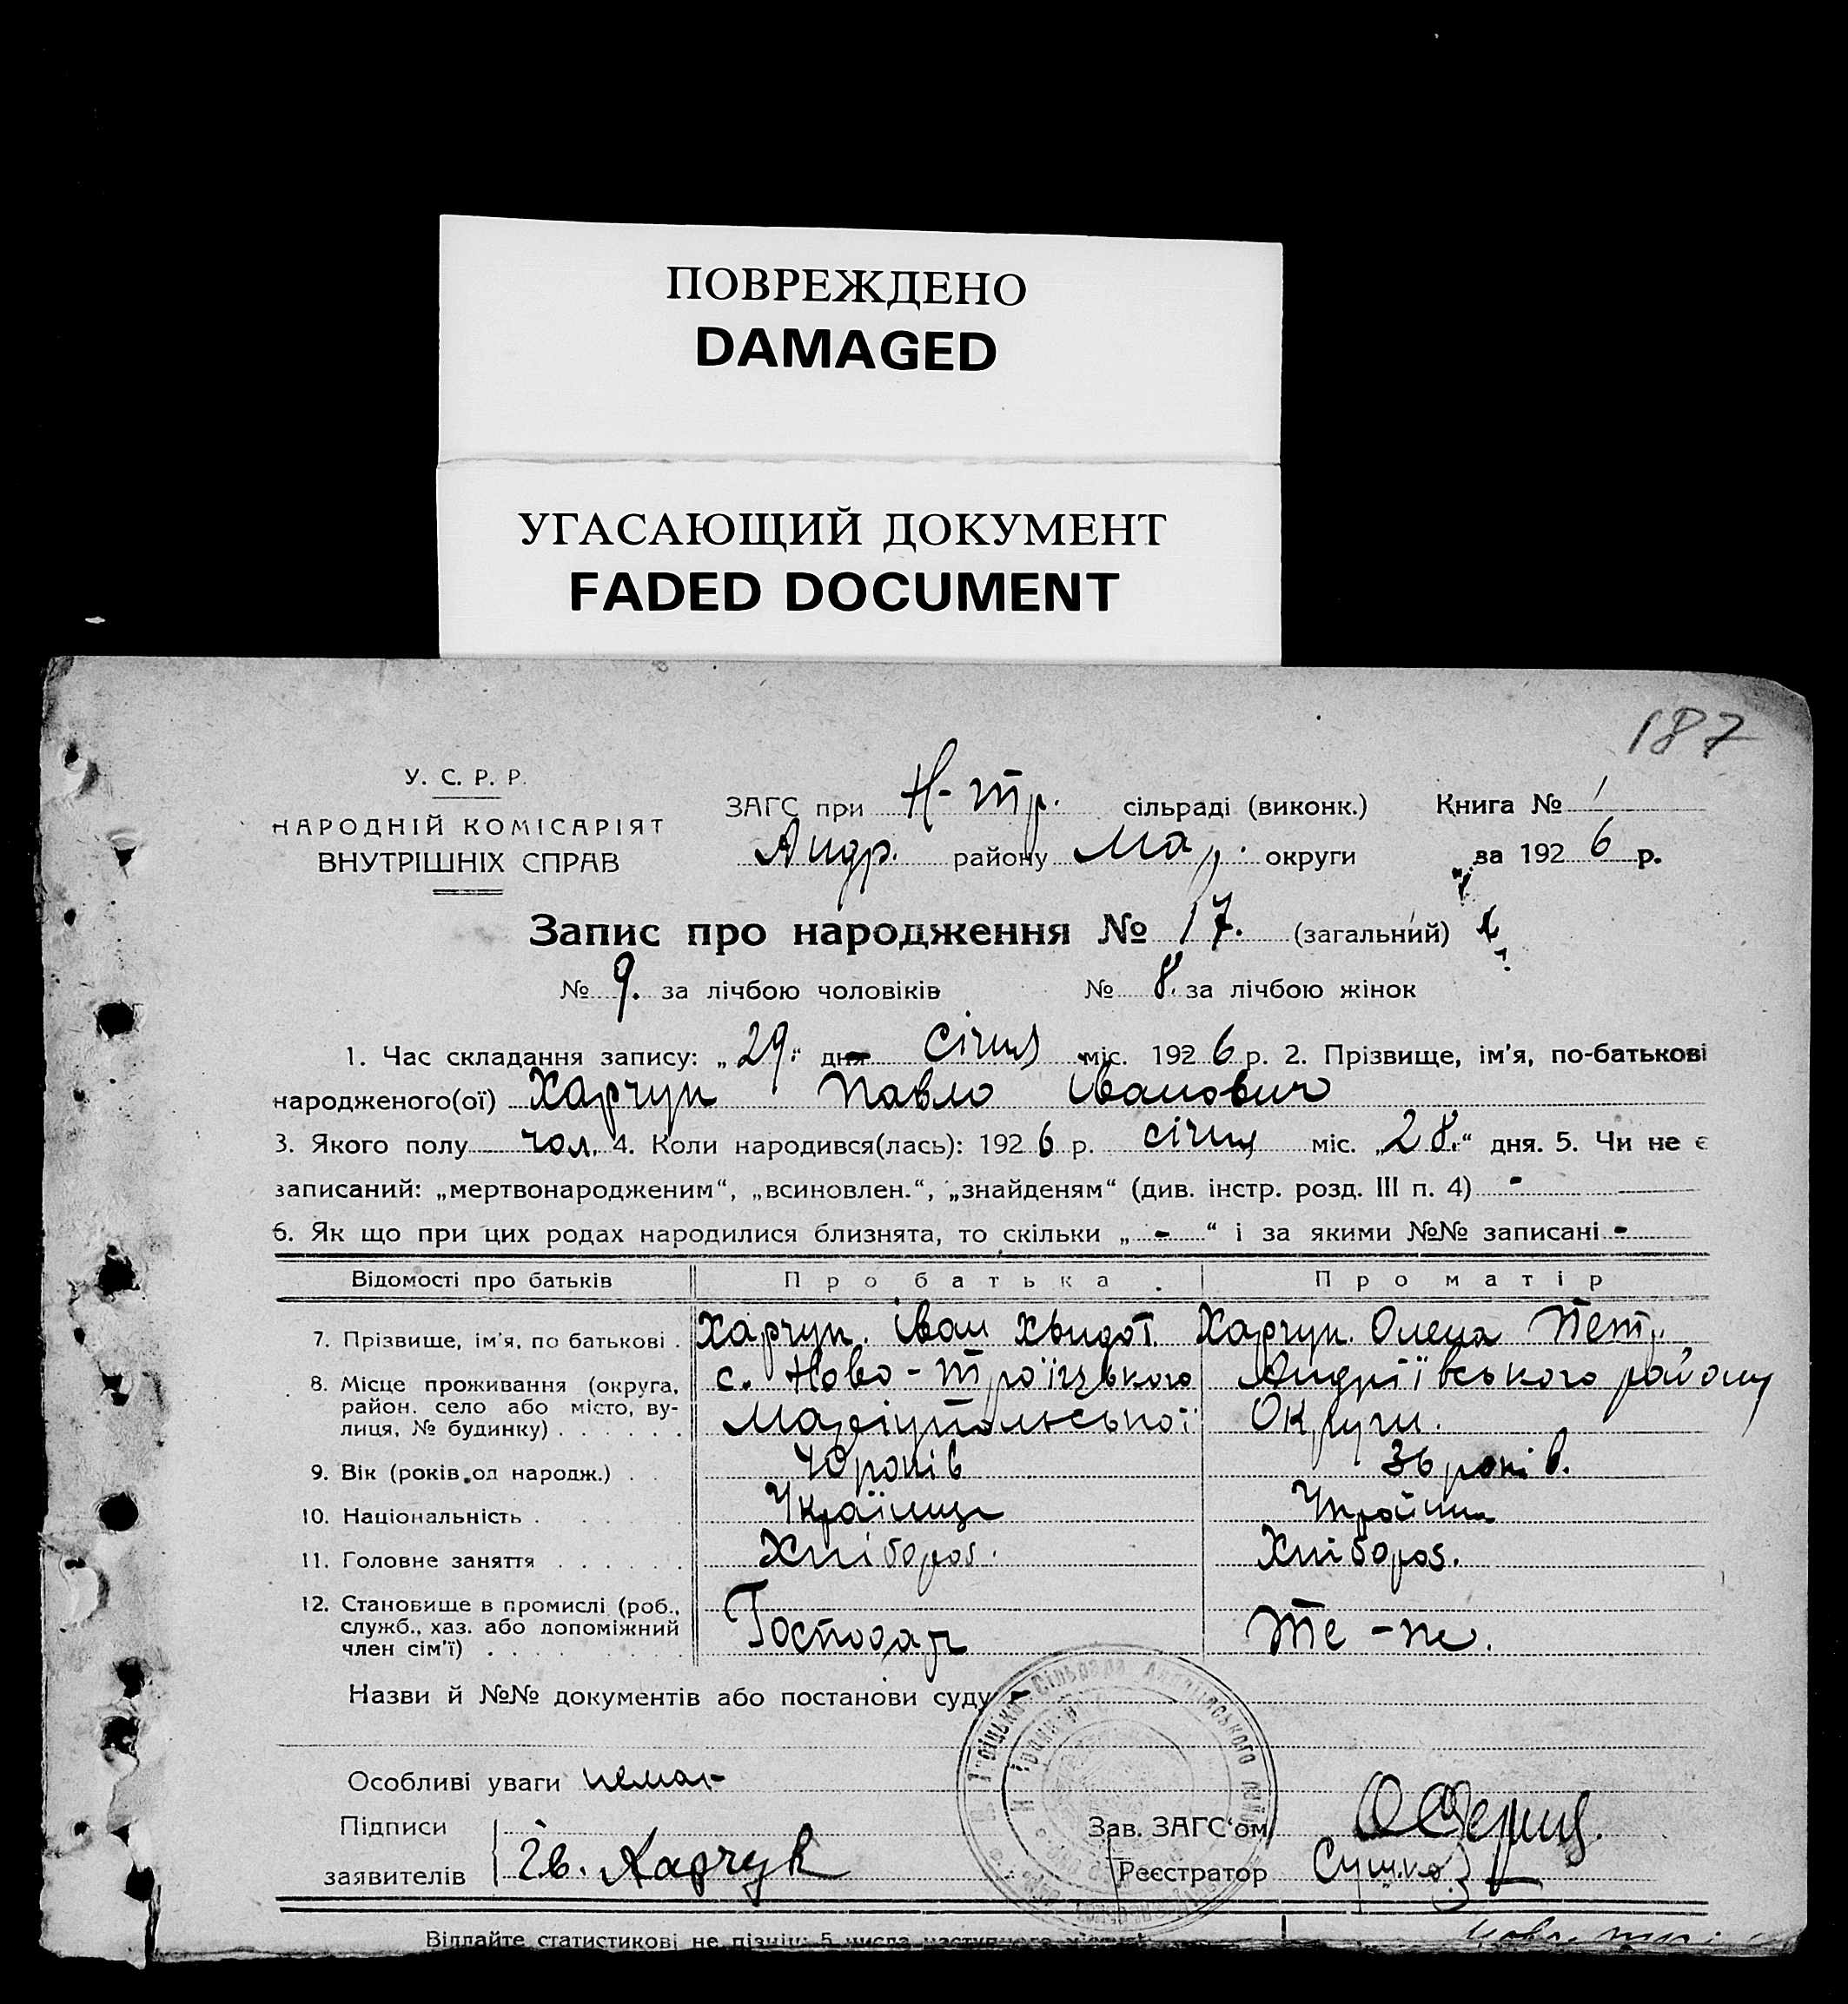 ПОВРЕЖДЕНО
DAMAGED
УГАСАЮЩИЙ ДОКУМЕНТ
FADED DOCUMENT
187
У. С. Р. Р.
НАРОДНІЙ КОМІСАРІЯТ
ВНУТРІШНІХ СПРАВ
ЗАГС при Н-Тр. сільраді (виконк.) Книга № 1
Андр. району Мар. округи за 1926 р.
Запис про народження № 17. (загальний)
№ 9. за лічбою чоловіків № 8. за лічбою жінок
1. Час складання запису: „29.“ дня січня міс. 1926 р. 2. Прізвище, ім'я, по-батькові
народженого(ої) Харчук Павло Іванович
3. Якого полу чол. 4. Коли народився(лась): 1926 р. січня міс. „28.“ дня. 5. Чи не є
записаний: „мертвонародженим“, „всиновлен.“, „знайденям“ (див. інстр. розд. III п. 4) -
6. Як що при цих родах народилися близнята, то скільки „-“ і за якими №№ записані -
Відомості про батьків Про батька Про матір
7. Прізвище, ім'я, по батькові . Харчук. Іван Хведот. Харчук. Олена Петр.
8. Місце проживання (округа, район. село або місто, вулиця, № будинку) . . . . . . с. Ново-Троїцького Андріївського району
Маріупольської Округи.
9. Вік (років од народж.) . . 40 років 36 років.
10. Національність . . . . . Українец Украйинка
11. Головне заняття . . . . . Хлібороб. Хлібороб.
12. Становище в промислі (роб., служб., хаз. або допоміжний член сім'ї) . . . . Господар Те-ж.
Назви й №№ документів або постанови суду -
Особливі уваги немає
Підписи
заявителів Ів. Харчук
Зав. ЗАГС'ом
Реєстратор
Троїцька Сільрада Андріївського
Віддайте статистикові не пізніш 5 числа наступного